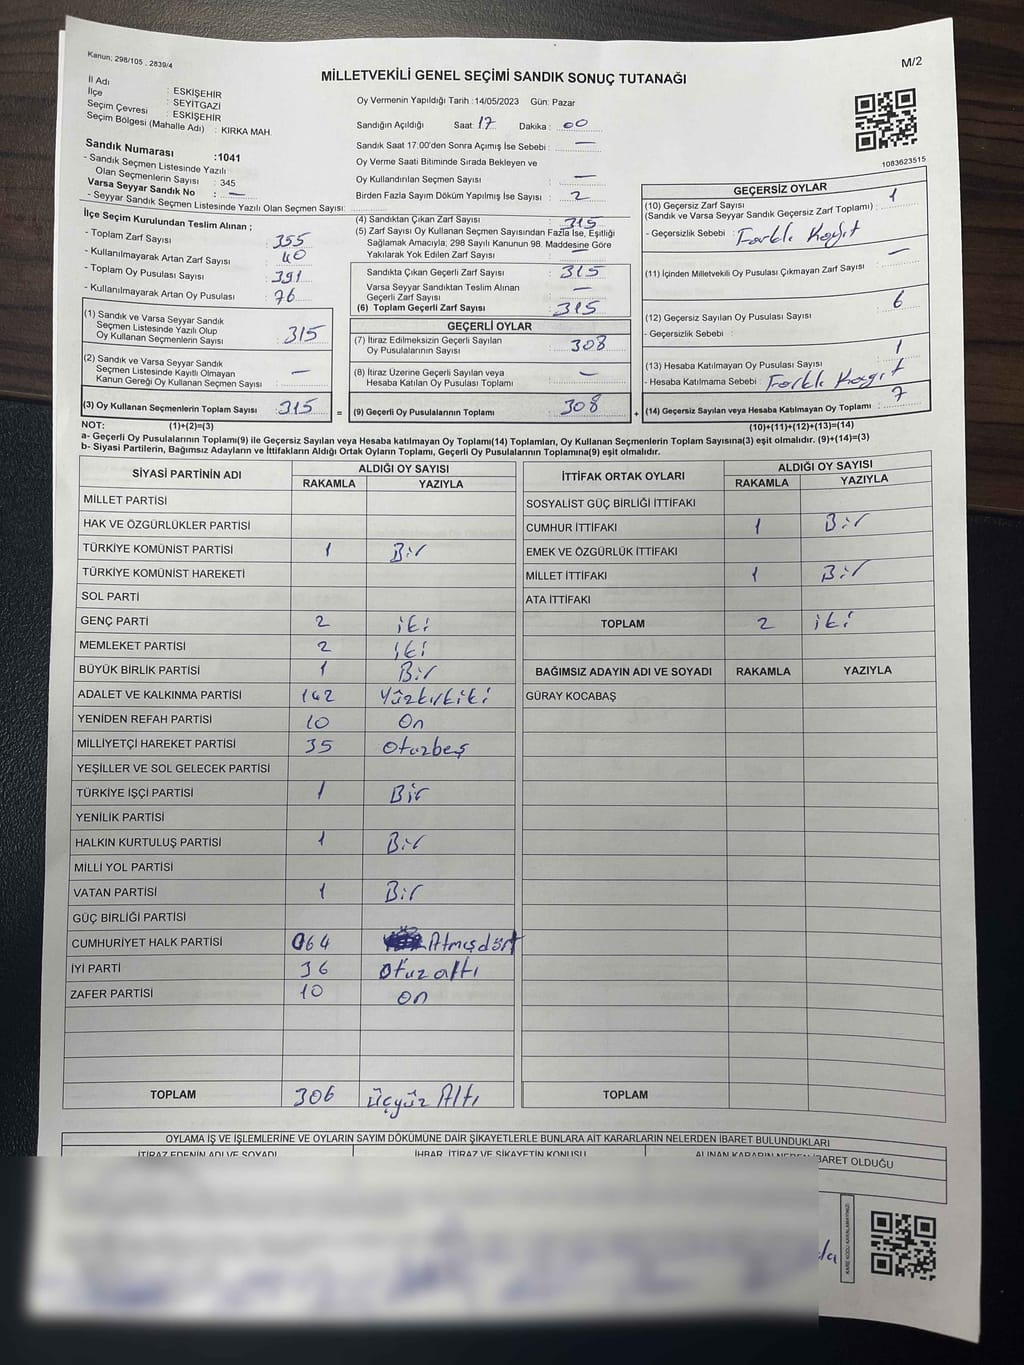 Kanun; 298/105 . 2839/4
M/2
MİLLETVEKİLİ GENEL SEÇİMİ SANDIK SONUÇ TUTANAĞI
İl Adı : ESKİŞEHİR
İlçe : SEYİTGAZİ
Seçim Çevresi : ESKİŞEHİR
Seçim Bölgesi (Mahalle Adı) : KIRKA MAH.
Sandık Numarası :1041
- Sandık Seçmen Listesinde Yazılı
Olan Seçmenlerin Sayısı : 345
Varsa Seyyar Sandık No : —
- Seyyar Sandık Seçmen Listesinde Yazılı Olan Seçmen Sayısı:
Oy Vermenin Yapıldığı Tarih :14/05/2023 Gün: Pazar
Sandığın Açıldığı Saat: 17 Dakika : 00
Sandık Saat 17:00'den Sonra Açımış İse Sebebi : —
Oy Verme Saati Bitiminde Sırada Bekleyen ve
Oy Kullandırılan Seçmen Sayısı : —
Birden Fazla Sayım Döküm Yapılmış İse Sayısı : 2
1083623515
İlçe Seçim Kurulundan Teslim Alınan ;
- Toplam Zarf Sayısı : 355
- Kullanılmayarak Artan Zarf Sayısı : 40
- Toplam Oy Pusulası Sayısı : 391
- Kullanılmayarak Artan Oy Pusulası : 76
(1) Sandık ve Varsa Seyyar Sandık
Seçmen Listesinde Yazılı Olup
Oy Kullanan Seçmenlerin Sayısı : 315
(2) Sandık ve Varsa Seyyar Sandık
Seçmen Listesinde Kayıtlı Olmayan
Kanun Gereği Oy Kullanan Seçmen Sayısı : —
(3) Oy Kullanan Seçmenlerin Toplam Sayısı : 315
(4) Sandıktan Çıkan Zarf Sayısı : 315
(5) Zarf Sayısı Oy Kullanan Seçmen Sayısından Fazla İse, Eşitliği
Sağlamak Amacıyla; 298 Sayılı Kanunun 98. Maddesine Göre
Yakılarak Yok Edilen Zarf Sayısı : —
Sandıkta Çıkan Geçerli Zarf Sayısı : 315
Varsa Seyyar Sandıktan Teslim Alınan
Geçerli Zarf Sayısı : —
(6) Toplam Geçerli Zarf Sayısı : 315
GEÇERLİ OYLAR
(7) İtiraz Edilmeksizin Geçerli Sayılan
Oy Pusulalarının Sayısı : 308
(8) İtiraz Üzerine Geçerli Sayılan veya
Hesaba Katılan Oy Pusulası Toplamı : —
= (9) Geçerli Oy Pusulalarının Toplamı : 308
GEÇERSİZ OYLAR
(10) Geçersiz Zarf Sayısı : 1
(Sandık ve Varsa Seyyar Sandık Geçersiz Zarf Toplamı)
- Geçersizlik Sebebi : Farklı Kağıt
(11) İçinden Milletvekili Oy Pusulası Çıkmayan Zarf Sayısı : —
(12) Geçersiz Sayılan Oy Pusulası Sayısı : 6
- Geçersizlik Sebebi :
(13) Hesaba Katılmayan Oy Pusulası Sayısı : 1
- Hesaba Katılmama Sebebi : Farklı Kağıt
+ (14) Geçersiz Sayılan veya Hesaba Katılmayan Oy Toplamı : 7
NOT: (1)+(2)=(3)
(10)+(11)+(12)+(13)=(14)
a- Geçerli Oy Pusulalarının Toplamı(9) ile Geçersiz Sayılan veya Hesaba katılmayan Oy Toplamı(14) Toplamları, Oy Kullanan Seçmenlerin Toplam Sayısına(3) eşit olmalıdır. (9)+(14)=(3)
b- Siyasi Partilerin, Bağımsız Adayların ve İttifakların Aldığı Ortak Oyların Toplamı, Geçerli Oy Pusulalarının Toplamına(9) eşit olmalıdır.
SİYASİ PARTİNİN ADI ALDIĞI OY SAYISI
RAKAMLA YAZIYLA
MİLLET PARTİSİ
HAK VE ÖZGÜRLÜKLER PARTİSİ
TÜRKİYE KOMÜNİST PARTİSİ 1 Bir
TÜRKİYE KOMÜNİST HAREKETİ
SOL PARTİ
GENÇ PARTİ 2 iki
MEMLEKET PARTİSİ 2 iki
BÜYÜK BİRLİK PARTİSİ 1 Bir
ADALET VE KALKINMA PARTİSİ 142 Yüzkırkiki
YENİDEN REFAH PARTİSİ 10 On
MİLLİYETÇİ HAREKET PARTİSİ 35 Otuzbeş
YEŞİLLER VE SOL GELECEK PARTİSİ
TÜRKİYE İŞÇİ PARTİSİ 1 Bir
YENİLİK PARTİSİ
HALKIN KURTULUŞ PARTİSİ 1 Bir
MİLLİ YOL PARTİSİ
VATAN PARTİSİ 1 Bir
GÜÇ BİRLİĞİ PARTİSİ
CUMHURİYET HALK PARTİSİ 064 Atmışdört
İYİ PARTİ 36 Otuzaltı
ZAFER PARTİSİ 10 on
TOPLAM 306 üçyüz Altı
İTTİFAK ORTAK OYLARI ALDIĞI OY SAYISI
RAKAMLA YAZIYLA
SOSYALİST GÜÇ BİRLİĞİ İTTİFAKI
CUMHUR İTTİFAKI 1 Bir
EMEK VE ÖZGÜRLÜK İTTİFAKI
MİLLET İTTİFAKI 1 Bir
ATA İTTİFAKI
TOPLAM 2 iki
BAĞIMSIZ ADAYIN ADI VE SOYADI RAKAMLA YAZIYLA
GÜRAY KOCABAŞ
TOPLAM
OYLAMA İŞ VE İŞLEMLERİNE VE OYLARIN SAYIM DÖKÜMÜNE DAİR ŞİKAYETLERLE BUNLARA AİT KARARLARIN NELERDEN İBARET BULUNDUKLARI
İTİRAZ EDENİN ADI VE SOYADI İHBAR, İTİRAZ VE ŞİKAYETİN KONUSU ALINAN KARARIN NEDEN İBARET OLDUĞU